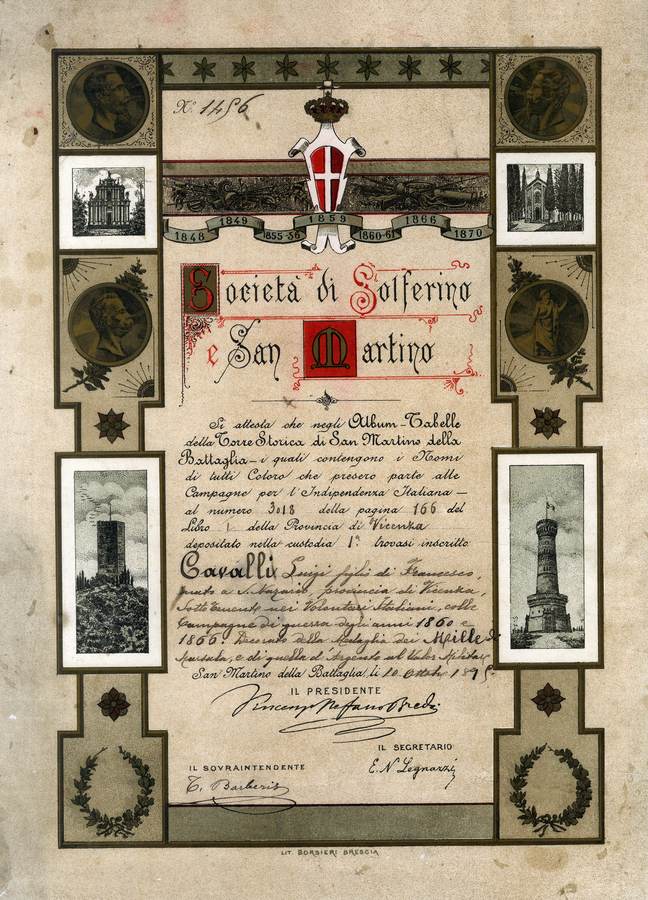 No. 1456
1848 1849 1855-56 1859 1860-61 1866 1870
Società di Solferino
e San Martino
Si attesta che negli Album-Tabelle
della Torre Storica di San Martino della
Battaglia - i quali contengono i Nomi
di tutti Coloro che presero parte alle
Campagne per l'Indipendenza Italiana -
al numero 3018 della pagina 166 del
Libro 1 della Provincia di Vicenza
depositato nella custodia 1ª trovasi inscritto
Cavalli Luigi figlio di Francesco,
nato a S. Nazario, provincia di Vicenza,
Sottotenente nei Volontari Italiani, colle
Campagne di guerra degli anni 1860 e
1866. Decorato della Medaglia dei Mille di
Marsala, e di quella d'Argento al Valor Militare
San Martino della Battaglia, li 10 Ottobre
IL PRESIDENTE
Vincenzo Stefano Breda
IL SEGRETARIO
E. N. Legnazzi
IL SOVRAINTENDENTE
C. Barberis
LIT. BORSIERI BRESCIA